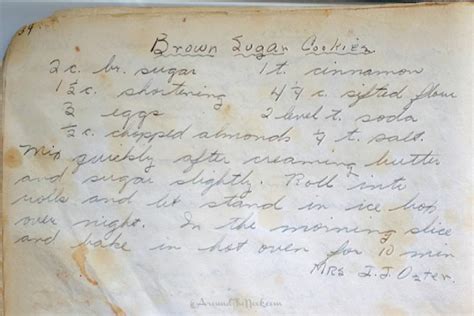 34
Brown Sugar Cookies
2 c. br. sugar 1 t. cinnamon
1 1/2 c. shortening 4 1/4 c. sifted flour
2 eggs 2 level t. soda
1/2 c. chopped almonds 1/4 t. salt.
Mix quickly after creaming butter
and sugar slightly. Roll into
rolls and let stand in ice box
over night. In the morning slice
and bake in hot oven for 10 min
Mrs J.J. Oster.